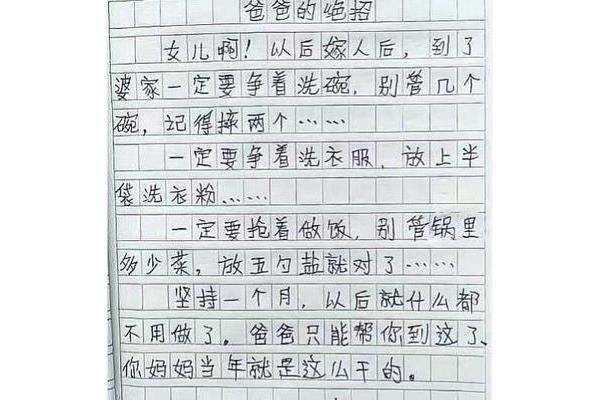 爸爸的绝招
女儿啊！以后嫁人后，到了
婆家一定要争着洗碗，别管几个
碗，记得摔两个……
一定要争着洗衣服，放上半
袋洗衣粉……
一定要抢着做饭，别管锅里
多少菜，放五勺盐就对了……
坚持一个月，以后就什么都
不用做了。爸爸只能帮你到这了、
你妈妈当年就是这么干的。